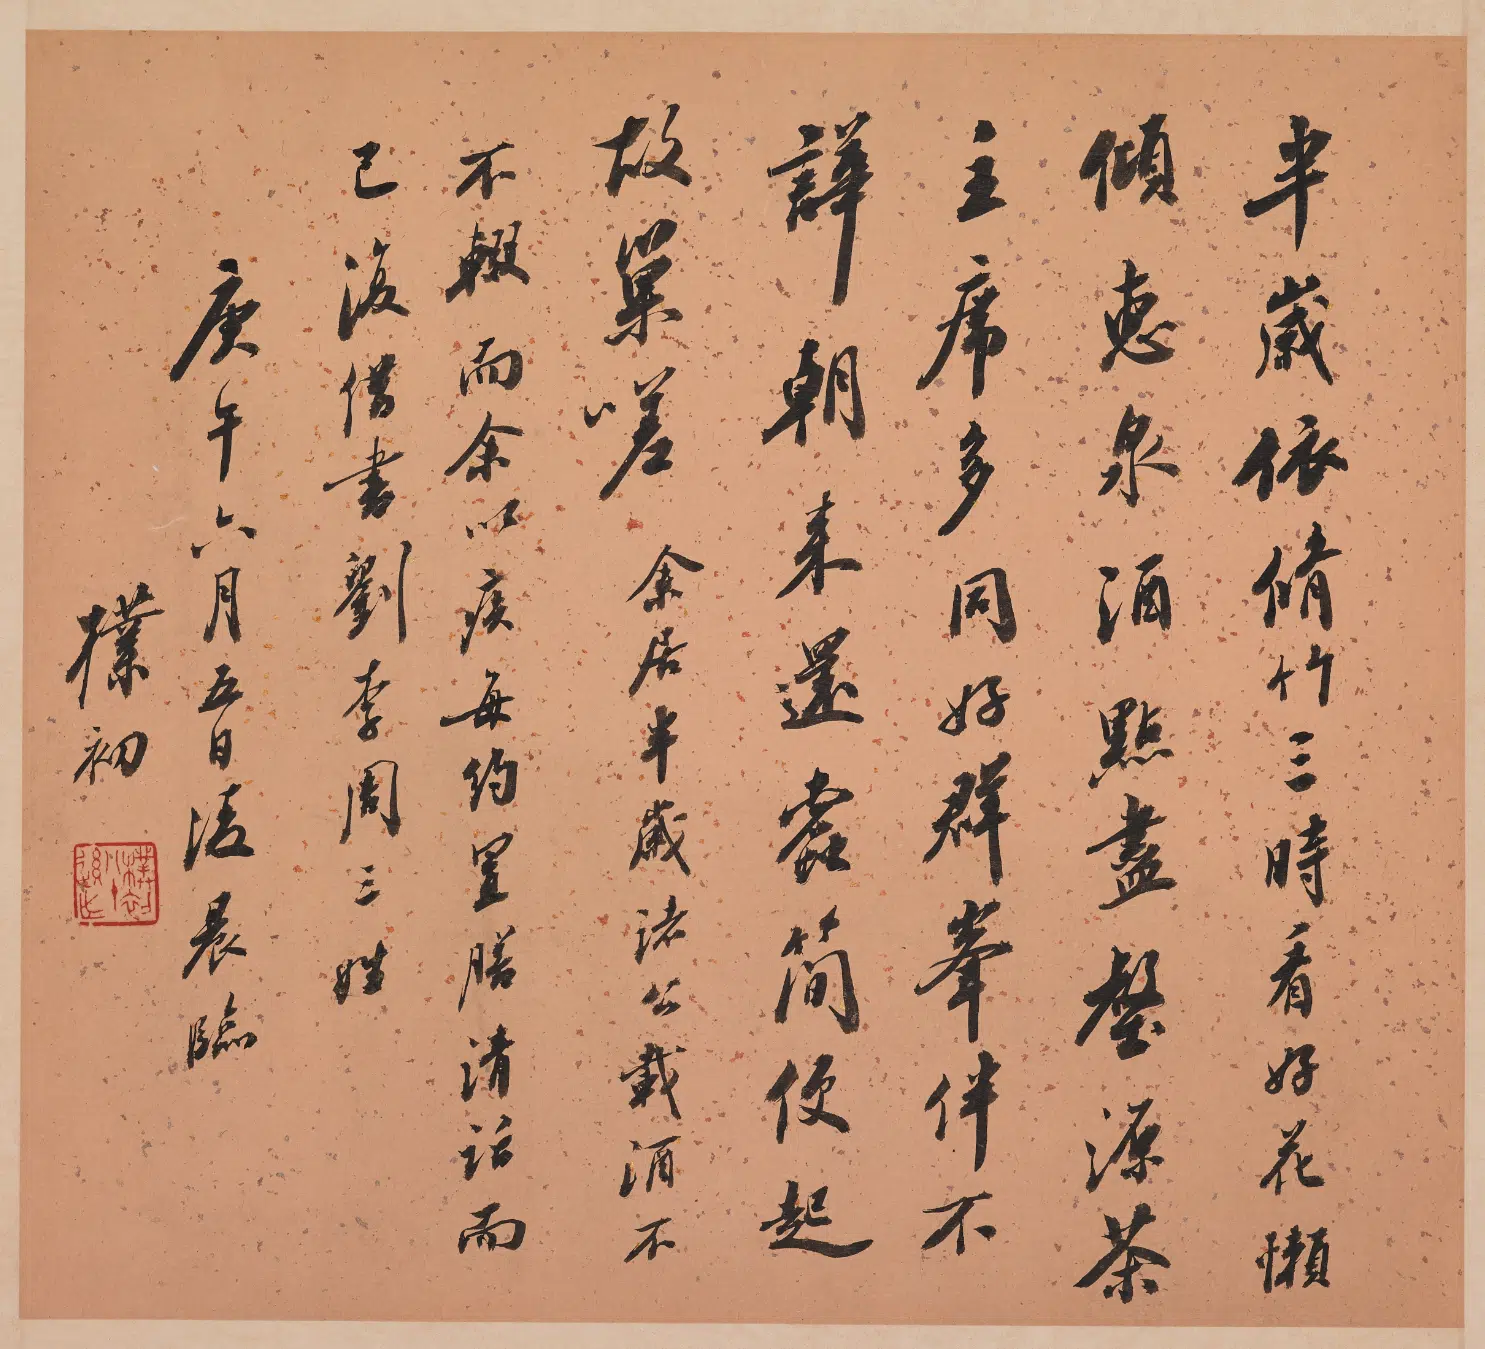 半歲依脩竹三時看好花懶
傾惠泉酒點盡壑源茶
主席多同好群峯伴不
譁朝來還蠹簡便起
故巢嗟 余居半歲諸公載酒不
不輟而余以疾每約置膳清話而
已復借書劉李周三姓
庚午六月五日清晨臨
樸初